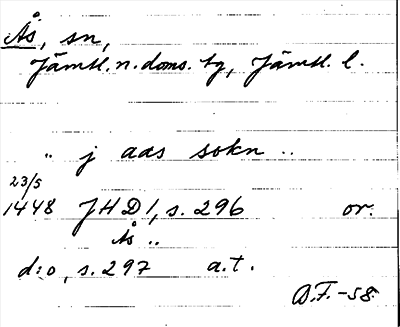 Ås, sn,
Jämtl. n. doms. tg, Jämtl. l.
.. j aas sokn ..
23/5
1448 JHD 1, s. 296 or.
Ås ..
d:o, s. 297 a.t.
D.F. -58.